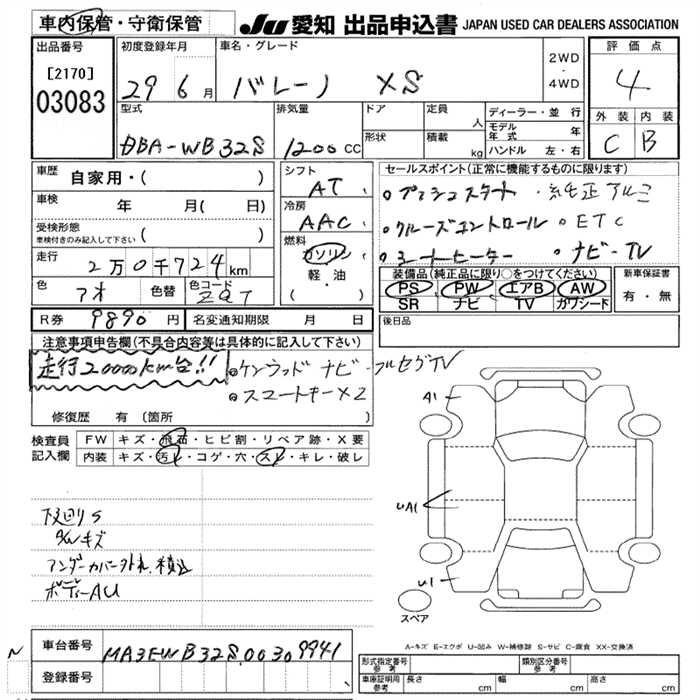 車内保管・守衛保管
JU 愛知 出品申込書 JAPAN USED CAR DEALERS ASSOCIATION
出品番号
[2170]
03083
初度登録年月
29 6月
車名・グレード
バレーノ XS
2WD
・
4WD
評価点
4
外装 内装
C B
型式
DBA-WB32S
排気量
1200 CC
ドア
形状
定員 人
積載 kg
ディーラー・並行
モデル年式 年
ハンドル 左・右
車歴 自家用・( )
車検 年 月( 日)
受検形態
車検付きのみ記入して下さい ( )
走行
2万0千724km
色
アオ
色替
色コード
ZQT
シフト
AT
冷房
AAC
燃料
ガソリン
軽・油
( )
セールスポイント(正常に機能するものに限ります)
・プッシュスタート ・純正アルミ
・クルーズコントロール ・ETC
・シートヒーター ・ナビ・TV
装備品(純正品に限り○をつけてください)
PS PW エアB AW
SR ナビ TV カワシード
新車保証書
有・無
R券 9890円
名変通知期限 月 日
後日品
注意事項申告欄(不具合内容等は具体的に記入して下さい)
走行20000km台!!
・ケンウッドナビ・フルセグTV
・スマートキー×2
修復歴 有(箇所 )
検査員
記入欄
FW キズ・飛石・ヒビ割・リペア跡・X要
内装 キズ・汚レ・コゲ・穴・スレ・キレ・破レ
下回りS
AWキズ
アンダーカバー外れ、積込
ボディーAU
A1
UA1
U1
スペア
A-キズ E-エクボ U-凹み W-補修跡 S-サビ C-腐食 XX-交換済
N
車台番号 MA3EWB32S00309941
登録番号
形式指定番号
参考
類別区分番号
参考
車庫証明用
参考
長さ cm 幅 cm 高さ cm